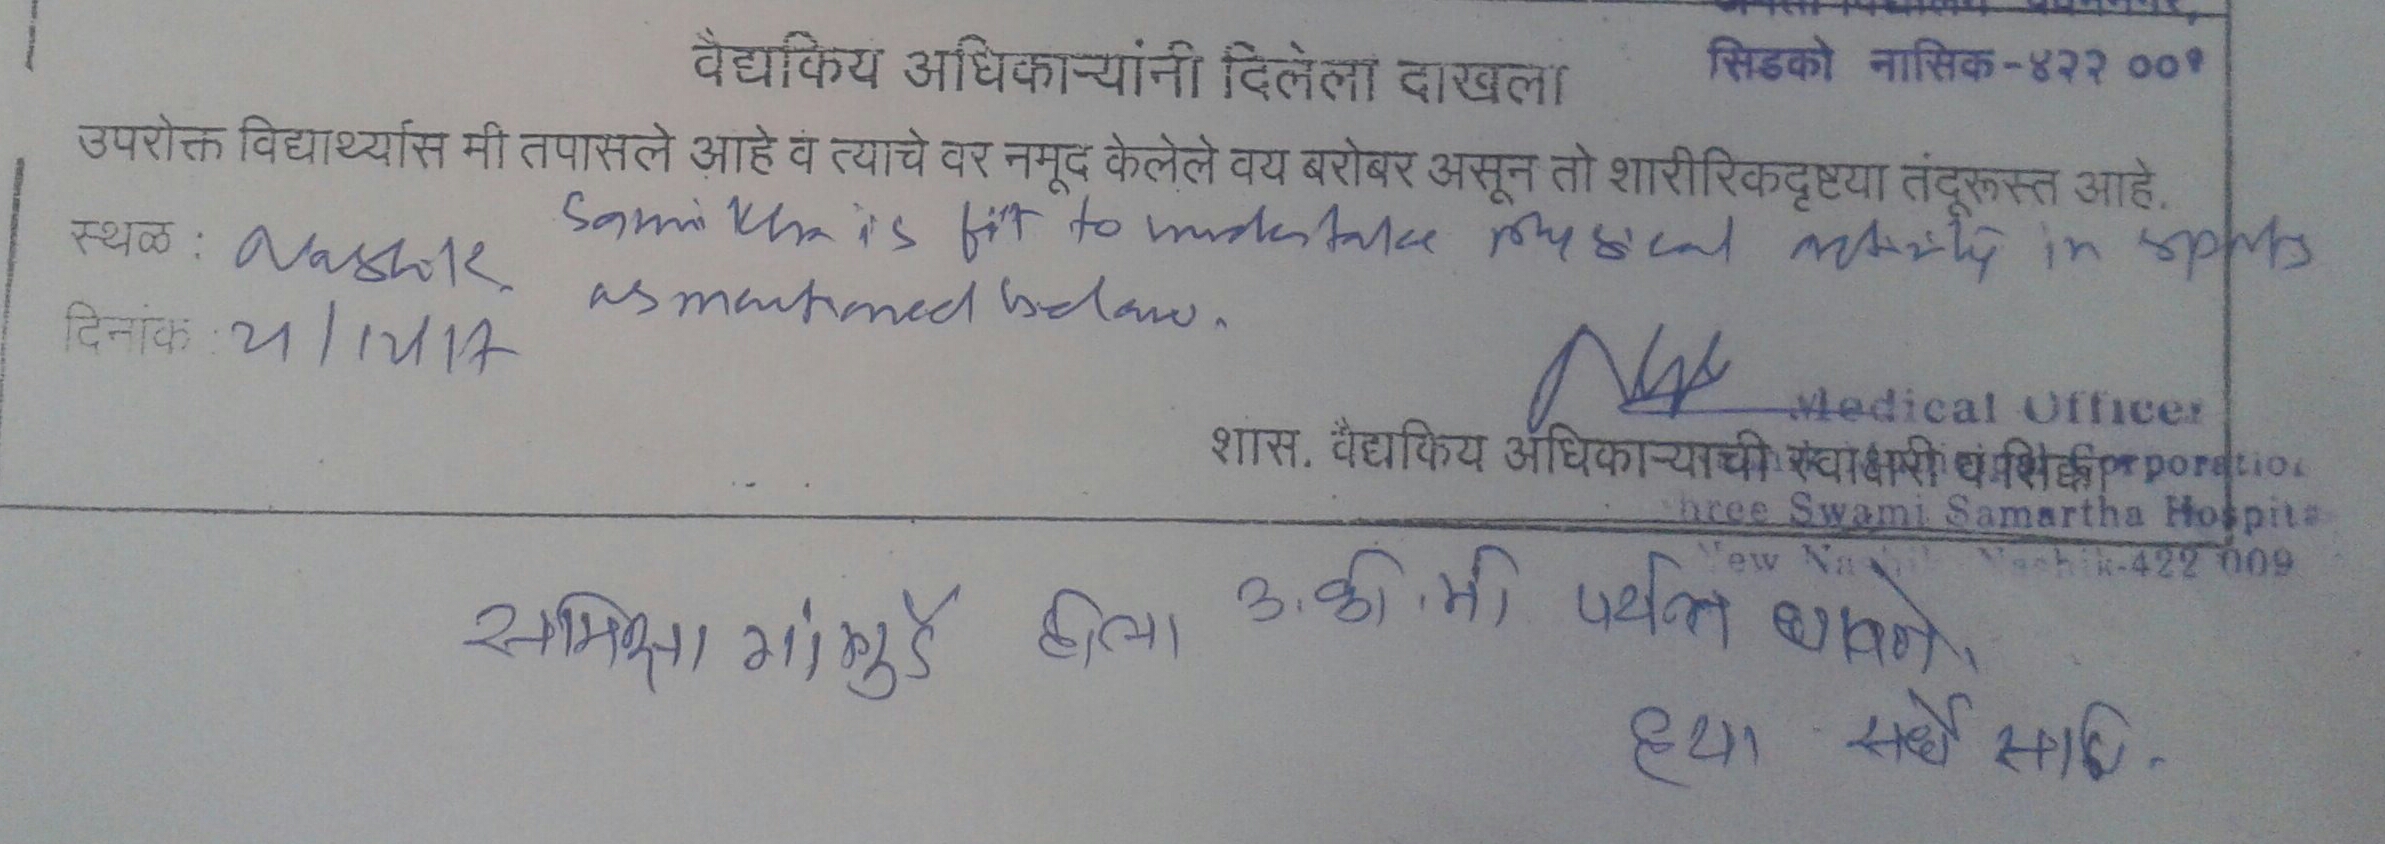 सिडको नासिक-४२२ ००१
वैद्यकिय अधिकाऱ्यांनी दिलेला दाखला
उपरोक्त विद्यार्थ्यास मी तपासले आहे व त्याचे वर नमूद केलेले वय बरोबर असून तो शारीरिकदृष्टया तंदूरूस्त आहे.
Samiksha is fit to undertake physical activity in sports
स्थळ : Nashik
as mentioned below.
दिनांक : 21/12/17
Medical Officer
शास. वैद्यकिय अधिकाऱ्याची स्वाक्षरी व शिक्का
Shree Swami Samartha Hospita
New Nashik Nashik-422 009
समिक्षा गांगुर्डे हीला ३. की. मी पर्यन्त धावणे.
ह्या स्पर्धे साठि.